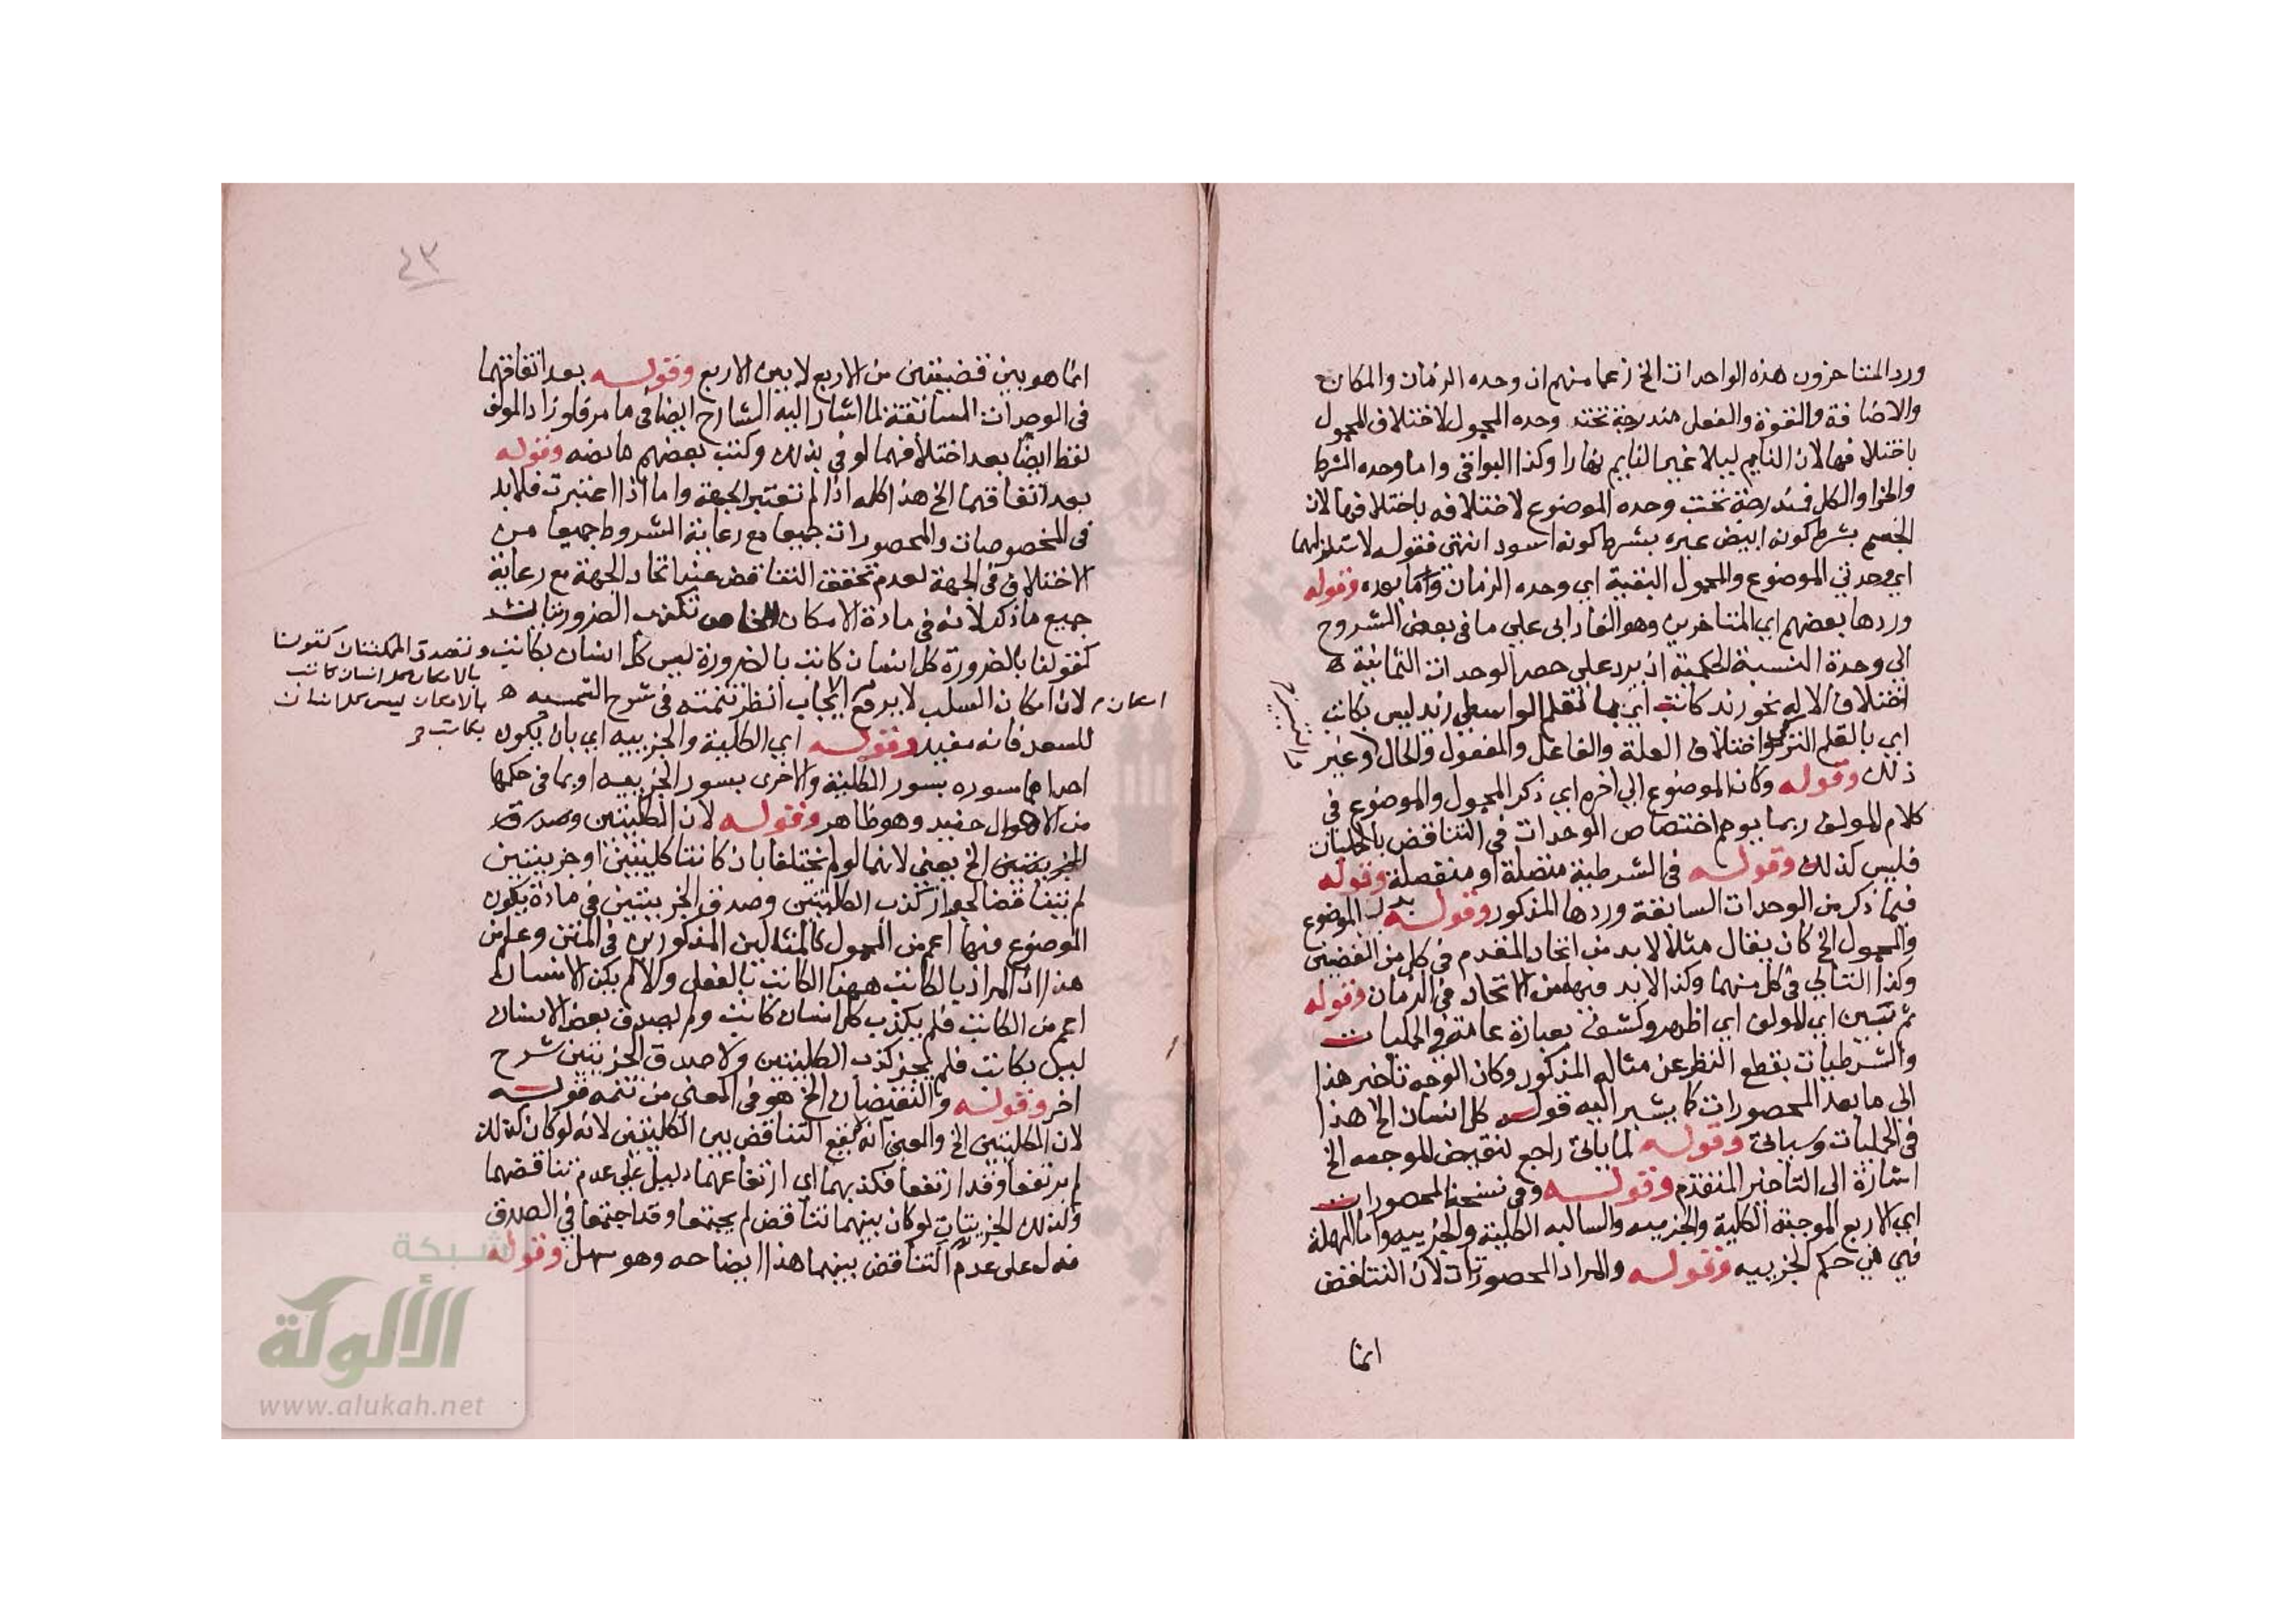 ورد المتاخرون هذه الواحدات الخ زعما منهم ان وحده الزمان والمكان
والاضافة والقوة والفعل مندرجة تحت وحده المحمول لاختلاف المحمول
باختلافها لان النايم ليلا غير النايم نهارا وكذا البواقى واما وحده الشرط
والجزا والكل فمندرجة تحت وحده الموضوع لاختلافه باختلافها لان
الجسم بشرط كونه ابيض غيره بشرط كونه اسود انتهى فقوله لاستلزامهما
اي وحدتي الموضوع والمحمول البقية اي وحده الزمان وما بعده وقوله
وردها بعضهم اي المتاخرين وهو الفارابى علي ما فى بعض الشروح
الي وحدة النسبة الحكمية اذ يرد علي حصر الوحدات الثمانية
اختلاف الاله نحو زيد كاتب اي بالقلم الواسطي زيد ليس بكاتب
اي بالقلم التركي واختلاف العلة والفاعل والمفعول والحال وغير
ذلك وقوله وكان الموضوع الي اخره اي ذكر المحمول والموضوع في
كلام المولف ربما يوهم اختصاص الوحدات في التناقض بالحمليات
فليس كذلك وقوله فى الشرطية متصلة او منفصلة وقوله
فيما ذكر من الوحدات السابقة وردها المذكور وقوله بدل الموضوع
والمحمول الخ كان يقال مثلا لا بد من اتحاد المقدم في كل من القضيتين
وكذا التالي فى كل منهما وكذا لا بد فيها من الاتحاد فى الزمان وقوله
ثم تبين اي المولف اي اظهر وكشف بعبارة عامة فى الحمليات
والشرطيات بقطع النظر عن مثاله المذكور وكان الوجه تاخير هذا
الي ما بعد المحصورات كما يشير اليه قوله كل انسان الخ هذا
فى الحمليات وسياتى وقوله لما ياتى راجع لنقيض الموجبه الخ
اشارة الى التاخير المتقدم وقوله وفى نسخة المحصورات
اي الاربع الموجبة الكلية والجزييه والسالبه الكلية والجزييه واما المهملة
فهي في حكم الجزييه وقوله والمراد المحصورتان لان التناقض
انما
٤٣
انما هو بين قضيتين من الاربع لا بين الاربع وقوله بعد اتفاقهما
فى الوحدات السابقة لما اشار اليه الشارح ايضا فى ما مر فلو زاد المولف
لفظ ايضا بعد اختلافهما لوفى بذلك وكتب بعضهم ما نصه وقوله
بعد اتفاقهما الخ هذا كله اذا لم تعتبر الجهة واما اذا اعتبرت فلا بد
فى المخصوصات والمحصورات جميعا مع رعاية الشروط جميعا من
الاختلاف فى الجهة لعدم تحقق التناقض عند اتحاد الجهة مع رعاية
جميع ما ذكر لانه فى مادة الامكان الخاص تكذب الضرورتيان
كقولنا بالضرورة كل انسان كاتب بالضرورة ليس كل انسان بكاتب وتصدق الممكنتان كقولنا
بالامكان كل انسان كاتب
بالامكان ليس كل انسان
بكاتب
لان امكان السلب لا يرفع الايجاب انظر تتمته فى شرح الشمسيه
للسعد فانه مفيد وقوله اي الكلية والجزييه اي بان يكون
احداهما مسوره بسور الكلية والاخرى بسور الجزييه او بما فى حكمها
من الاهمال مفيد وهو ظاهر وقوله لان الكليتين وصدق
الجزييتين الخ يعني لانهما لو لم تختلفا بان كانتا كليتين او جزييتين
لم يتناقضا لجواز كذب الكليتين وصدق الجزييتين في مادة يكون
الموضوع فيها اعم من المحمول كالمثالين المذكورين فى المتن وعلم من
هذا ان المراد بالكاتب ههنا الكاتب بالفعل والا لم يكن الانسان
اعم من الكاتب فلم يكذب كل انسان كاتب ولم يصدق بعض الانسان
ليس بكاتب فلم يجز كذب الكليتين ولا صدق الجزييتين شرح
اخر وقوله والنقيضان الخ هو فى المعني من تتمه قوله
لان الكليتين الخ والمعني انه لا يقع التناقض بين الكليتين لانه لو كان كذلك
لم يرتفعا وقد ارتفعا فكذبهما اي ارتفاعهما دليل علي عدم تناقضهما
وكذلك الجزييتان لو كان بينهما تناقض لم يجتمعا وقد اجتمعا في الصدق
فدل على عدم التناقض بينهما هذا ايضاحه وهو سهل وقوله
شبكة
الألوكة
www.alukah.net